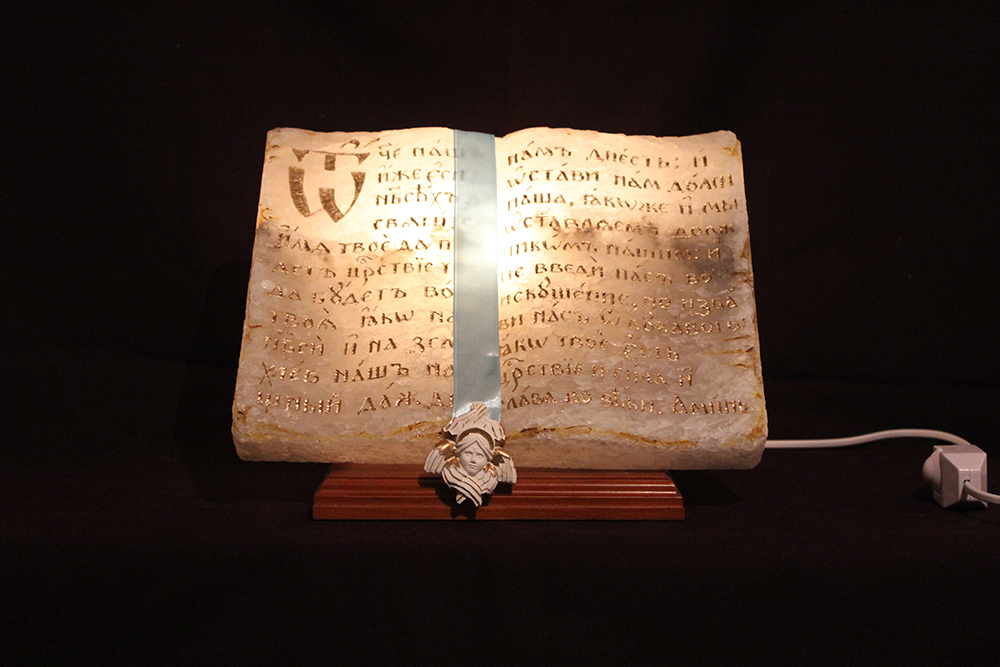 Ѿче наш
и҆́же є҆си
нб҃сѣ́хъ
свѧти
и҆́мѧ твоѐ да п
детъ црⷭ҇твїе т
да бꙋ́детъ во́
твоѧ̀ ꙗ҆́кѡ на
нб҃сѝ и҆ на зем
хлѣ́бъ на́шъ на
ꙋ́щный да́ждь
на́мъ дне́сть: и
ѡ҆ста́ви нам до́лги
на́ша, ꙗ҆́коже и҆ мы
ѡ҆ставлѧемъ долж
никѡмъ на́шимъ: и
не введѝ на́съ во
искꙋше́нїе, но изба
ви на́съ ѿ лꙋка́вагѡ
ꙗ҆́кѡ твоѐ є҆́сть
црⷭ҇твїе и си́ла и҆
сла́ва во вѣ́ки. Ами́нь